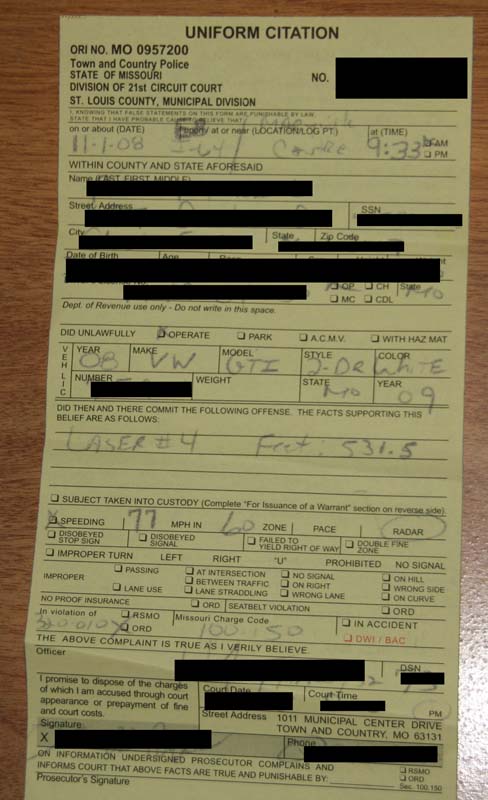 UNIFORM CITATION
ORI NO. MO 0957200
Town and Country Police
STATE OF MISSOURI
DIVISION OF 21st CIRCUIT COURT
NO.
ST. LOUIS COUNTY, MUNICIPAL DIVISION
I, KNOWING THAT FALSE STATEMENTS ON THIS FORM ARE PUNISHABLE BY LAW,
STATE THAT I HAVE PROBABLE CAUSE TO BELIEVE THAT
on or about (DATE) upon/ at or near (LOCATION/LOG PT.) at (TIME)
11-1-08 I-64 9:33 AM
PM
WITHIN COUNTY AND STATE AFORESAID
Name (LAST, FIRST, MIDDLE)
Street Address SSN
City State Zip Code
Date of Birth Age
OP CH State
MC CDL MO
Dept. of Revenue use only - Do not write in this space.
DID UNLAWFULLY OPERATE PARK A.C.M.V. WITH HAZ MAT
VEHIC YEAR MAKE MODEL STYLE COLOR
08 VW GTI 2-DR WHITE
NUMBER WEIGHT STATE YEAR
MO 09
DID THEN AND THERE COMMIT THE FOLLOWING OFFENSE. THE FACTS SUPPORTING THIS
BELIEF ARE AS FOLLOWS:
LASER #4 Feet: 531.5
SUBJECT TAKEN INTO CUSTODY (Complete "For Issuance of a Warrant" section on reverse side).
X SPEEDING 77 MPH IN 60 ZONE PACE RADAR
DISOBEYED STOP SIGN DISOBEYED SIGNAL FAILED TO YIELD RIGHT OF WAY DOUBLE FINE ZONE
IMPROPER TURN LEFT RIGHT "U" PROHIBITED NO SIGNAL
IMPROPER PASSING AT INTERSECTION NO SIGNAL ON HILL
BETWEEN TRAFFIC ON RIGHT WRONG SIDE
LANE USE LANE STRADDLING WRONG LANE ON CURVE
NO PROOF INSURANCE ORD SEATBELT VIOLATION ORD
In violation of RSMO Missouri Charge Code IN ACCIDENT
ORD 100.150 DWI / BAC
THE ABOVE COMPLAINT IS TRUE AS I VERILY BELIEVE.
Officer DSN
I promise to dispose of the charges
of which I am accused through court
appearance or prepayment of fine
and court costs.
Court Date Court Time
PM
Street Address 1011 MUNICIPAL CENTER DRIVE
TOWN AND COUNTRY, MO 63131
Signature
X Phone
ON INFORMATION UNDERSIGNED PROSECUTOR COMPLAINS AND
INFORMS COURT THAT ABOVE FACTS ARE TRUE AND PUNISHABLE BY: RSMO
ORD
Sec. 100.150
Prosecutor's Signature